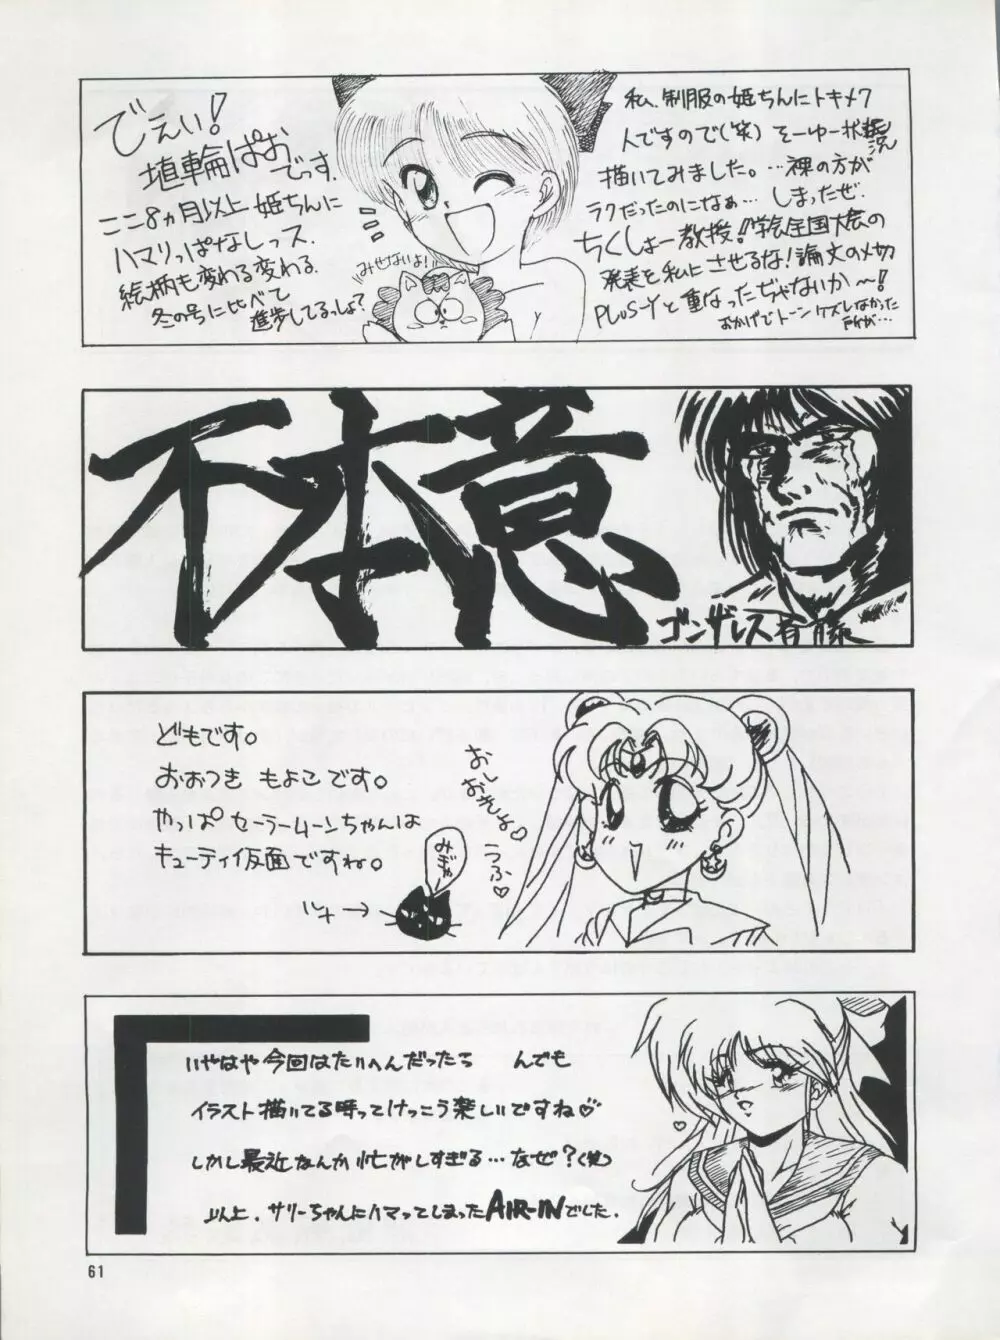 でぇい!
埴輪ぱおでっす.
ここ8ヵ月以上姫ちんに
ハマリっぱなしっス.
絵柄も変わる変わる.
冬の号に比べて
進歩してるっしょ?
みせないよ!
私、制服の姫ちんにトキメク
人ですので(笑) そーゆー状況
描いてみました。…裸の方が
ラクだったのになぁ… しまったぜ.
ちくしょー教授!!学会全国大会の
発表を私にさせるな!論文の〆切
PLUS-Yと重なったじゃないか〜!
おかげでトーンケズレなかった
所が…
不本意
ゴンザレス斉藤
どもです。
おおつき もよこです。
やっぱ セーラームーンちゃんは
キューティ仮面ですね。
ルナ→
みぎゃ
おしおきよ♡
うふ♡
いやはや今回はたいへんだったら んでも
イラスト描いてる時ってけっこう楽しいですね♡
しかし最近なんか忙がしすぎる…なぜ?(笑)
以上、サリーちゃんにハマってしまったAIR-INでした.
61